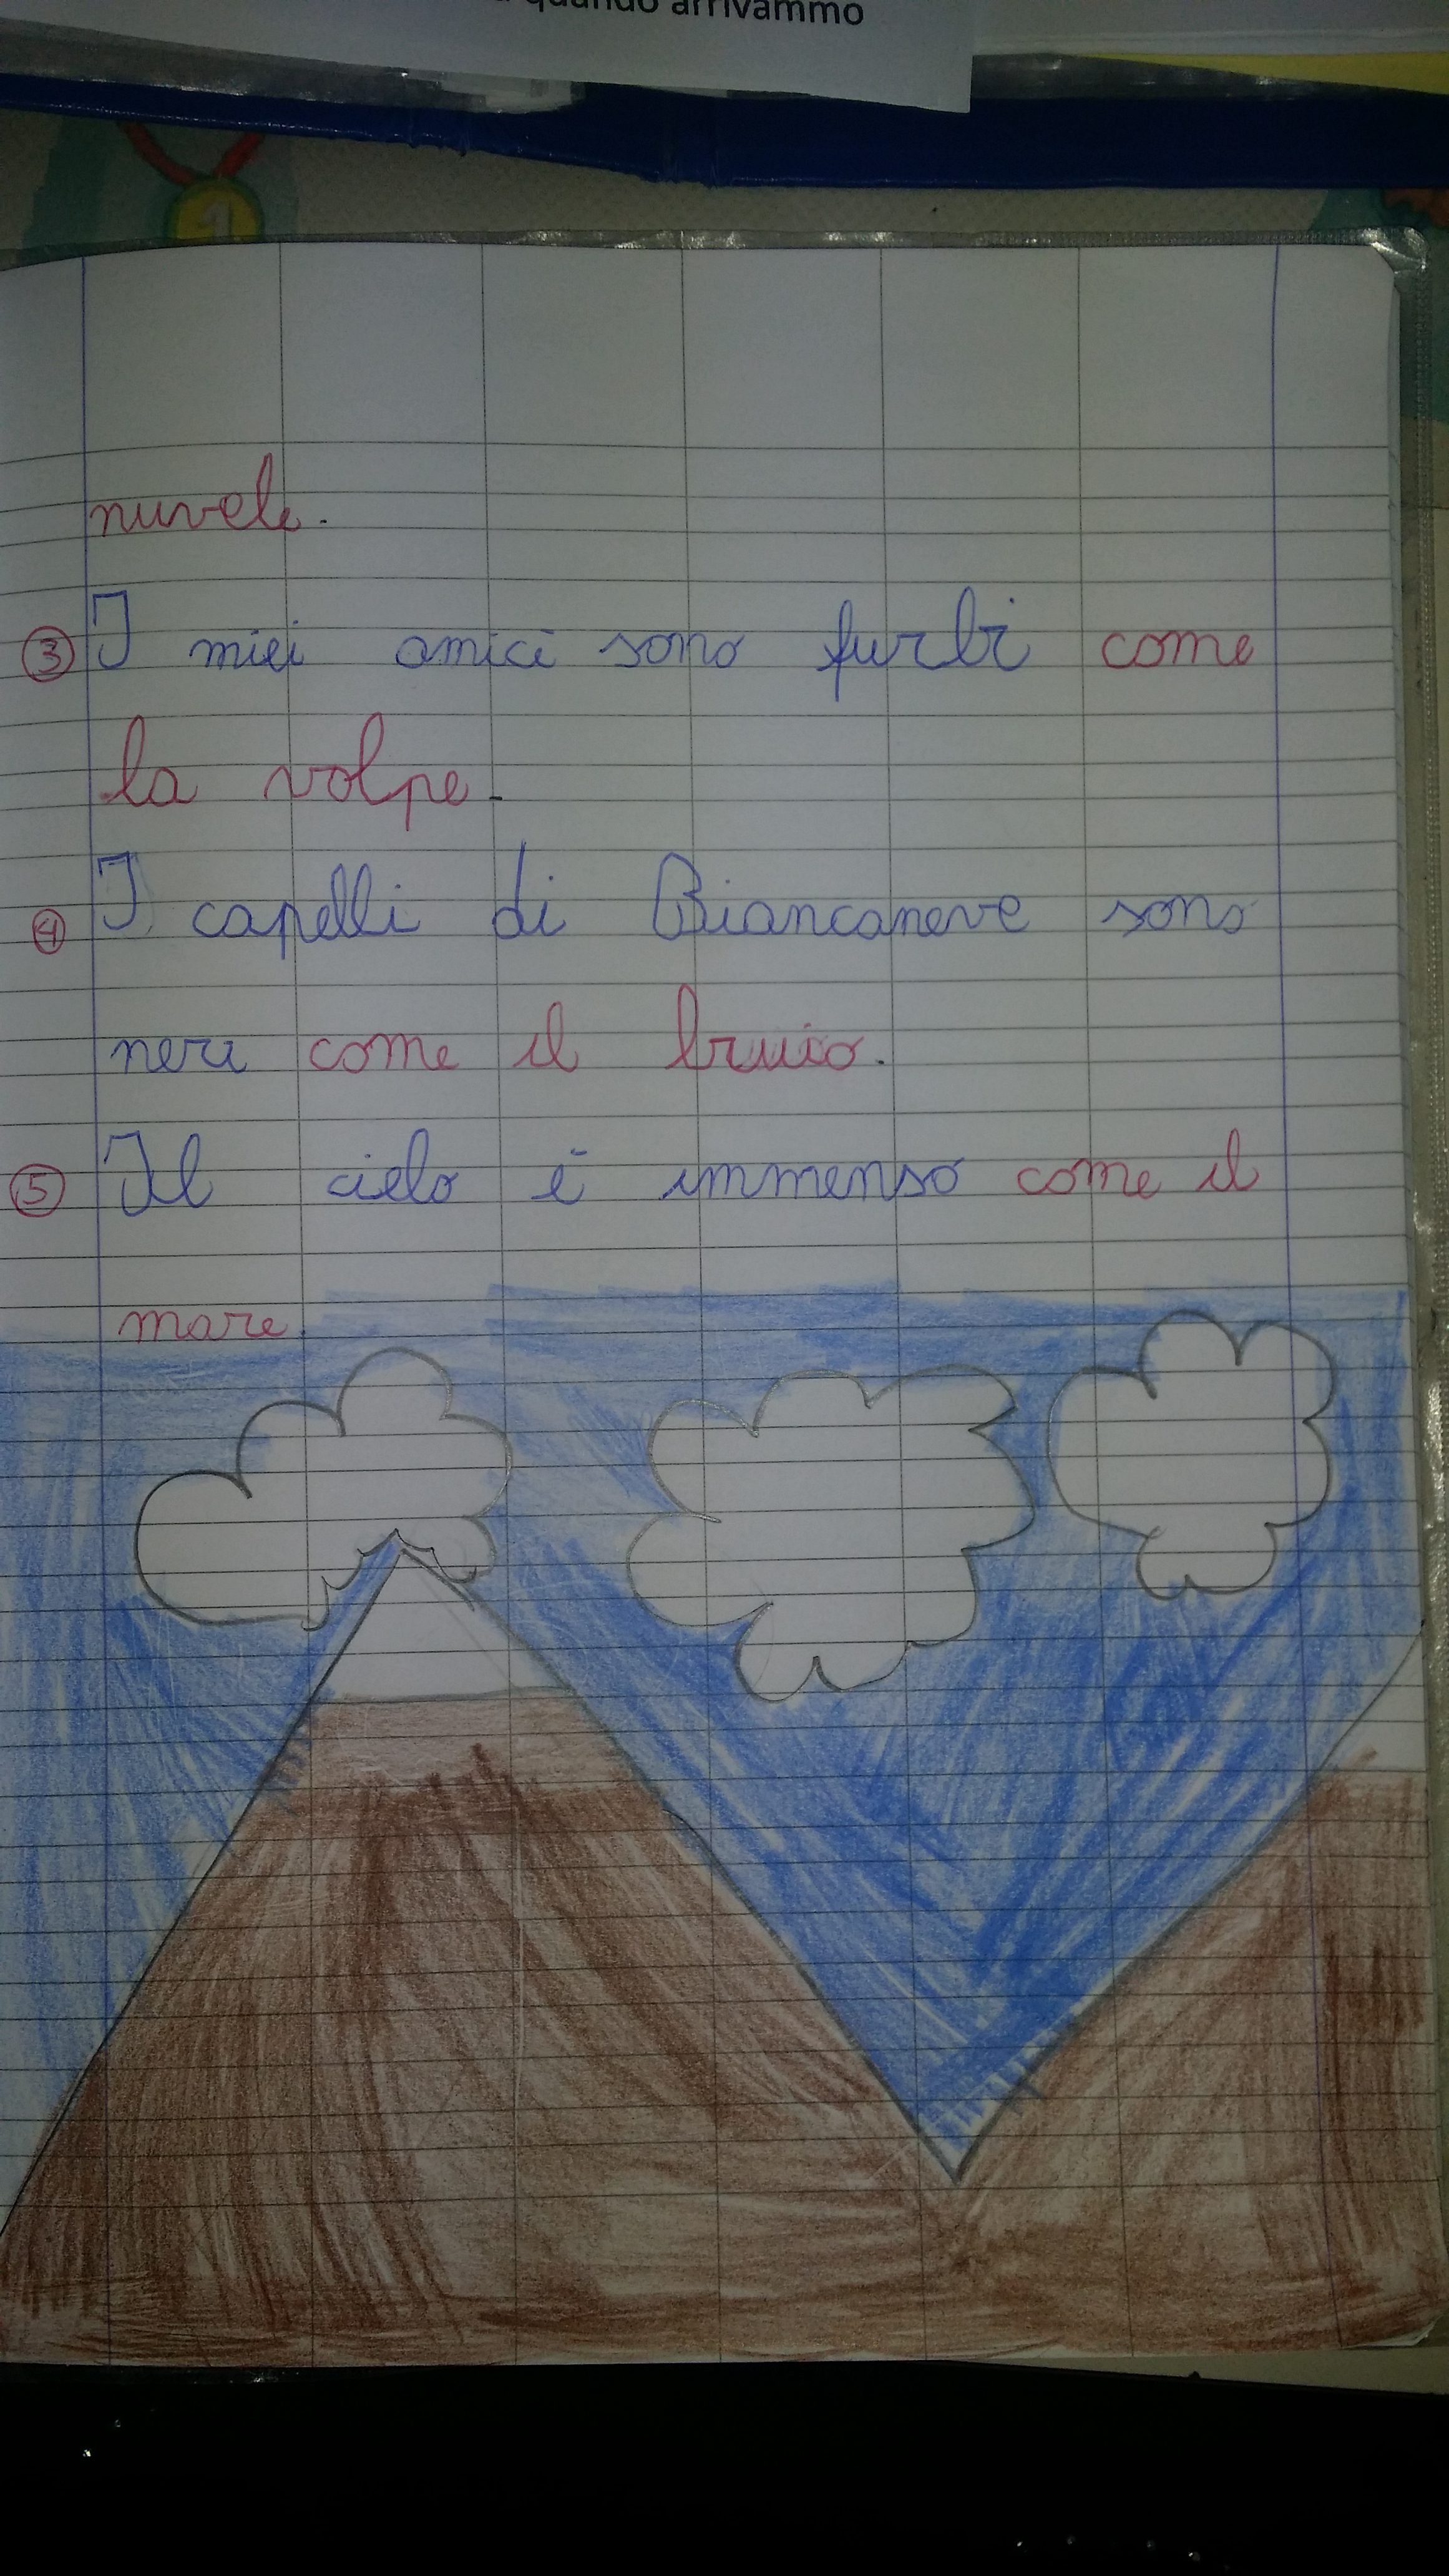 quando arrivammo
1
nuvole.
③ I miei amici sono furbi come
la volpe.
④ I capelli di Biancaneve sono
neri come il
⑤ Il cielo è immenso come il
mare.